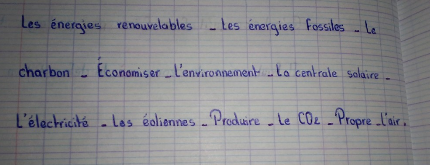 Les énergies renouvelables - Les énergies Fossiles - Le
charbon - Économiser - L'environnement - La centrale solaire -
L'électricité - Les éoliennes - Produire - Le CO2 - Propre - L'air.